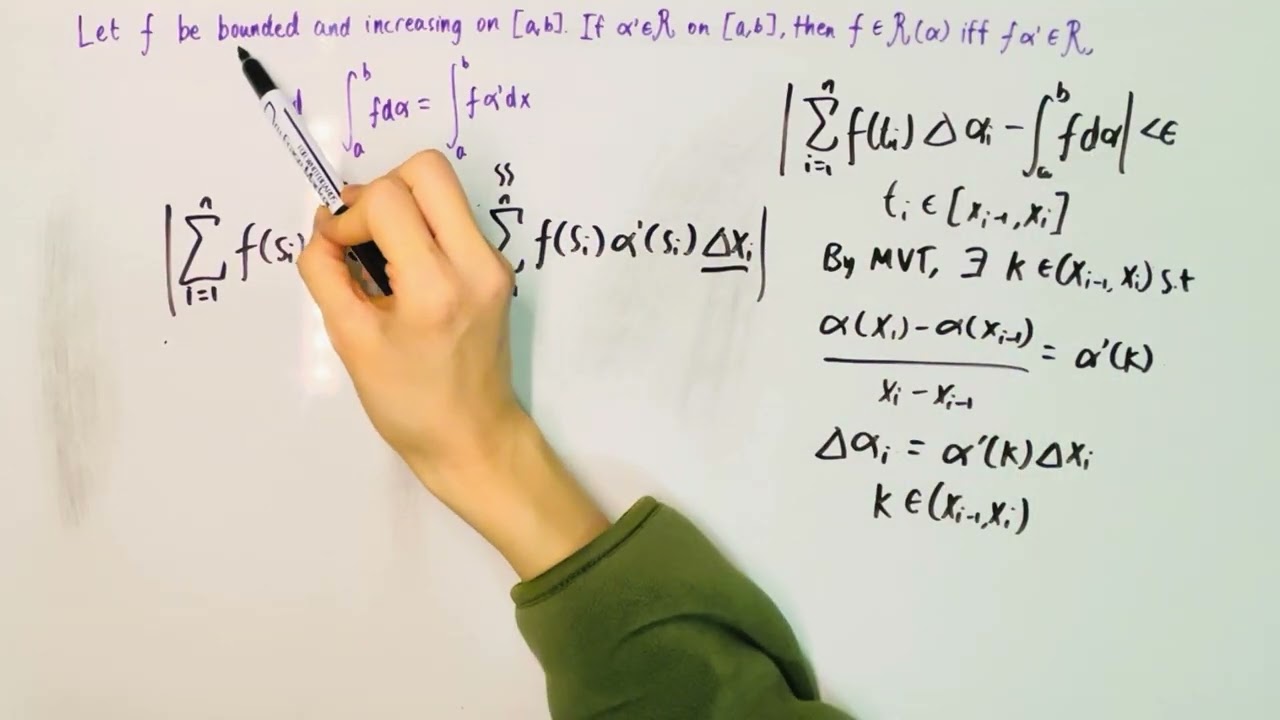 Let f be bounded and increasing on [a,b]. If α'∈ℛ on [a,b], then f∈ℛ(α) iff fα'∈ℛ,
∫_a^b fdα = ∫_a^b fα'dx
|∑_{i=1}^n f(s_i) ∑^n f(s_i)α'(s_i)Δx_i|
|∑_{i=1}^n f(t_i)Δα_i - ∫_a^b fdα| <ϵ
t_i ∈ [x_{i-1}, x_i]
By MVT, ∃ k ∈(x_{i-1}, x_i) s.t
(α(x_i) - α(x_{i-1})) / (x_i - x_{i-1}) = α'(k)
Δα_i = α'(k)Δx_i
k ∈(x_{i-1}, x_i)